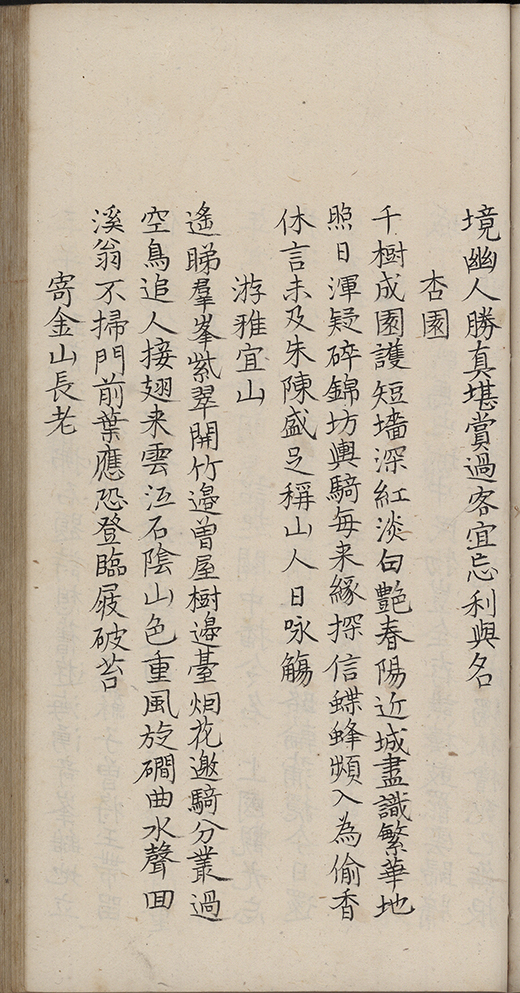 境幽人勝真堪賞過客宜忘利與名
杏園
千樹成園護短墻深紅淡白艷春陽近城盡識繁華地
照日渾疑碎錦坊輿騎每来緣探信蝶蜂頻入為偷香
休言未及朱陳盛足稱山人日咏觴
游雅宜山
遙睇羣峯紫翠開竹邊曽屋樹邊臺烟花邀騎分叢過
空鳥追人接翅来雲冱石陰山色重風旋磵曲水聲回
溪翁不掃門前葉應恐登臨屐破苔
寄金山長老